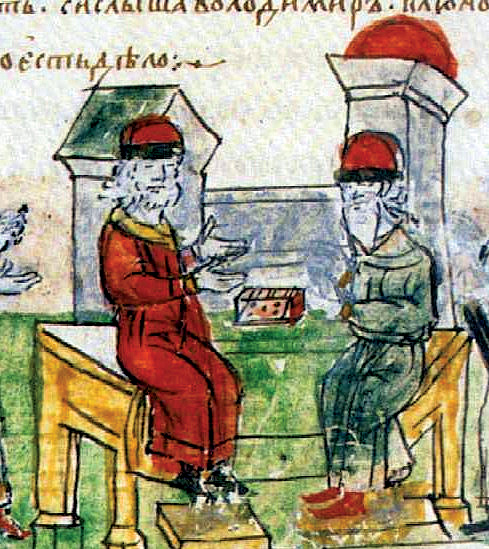 ть. сислыша володимиръ. плюно
оестьдѣло:~